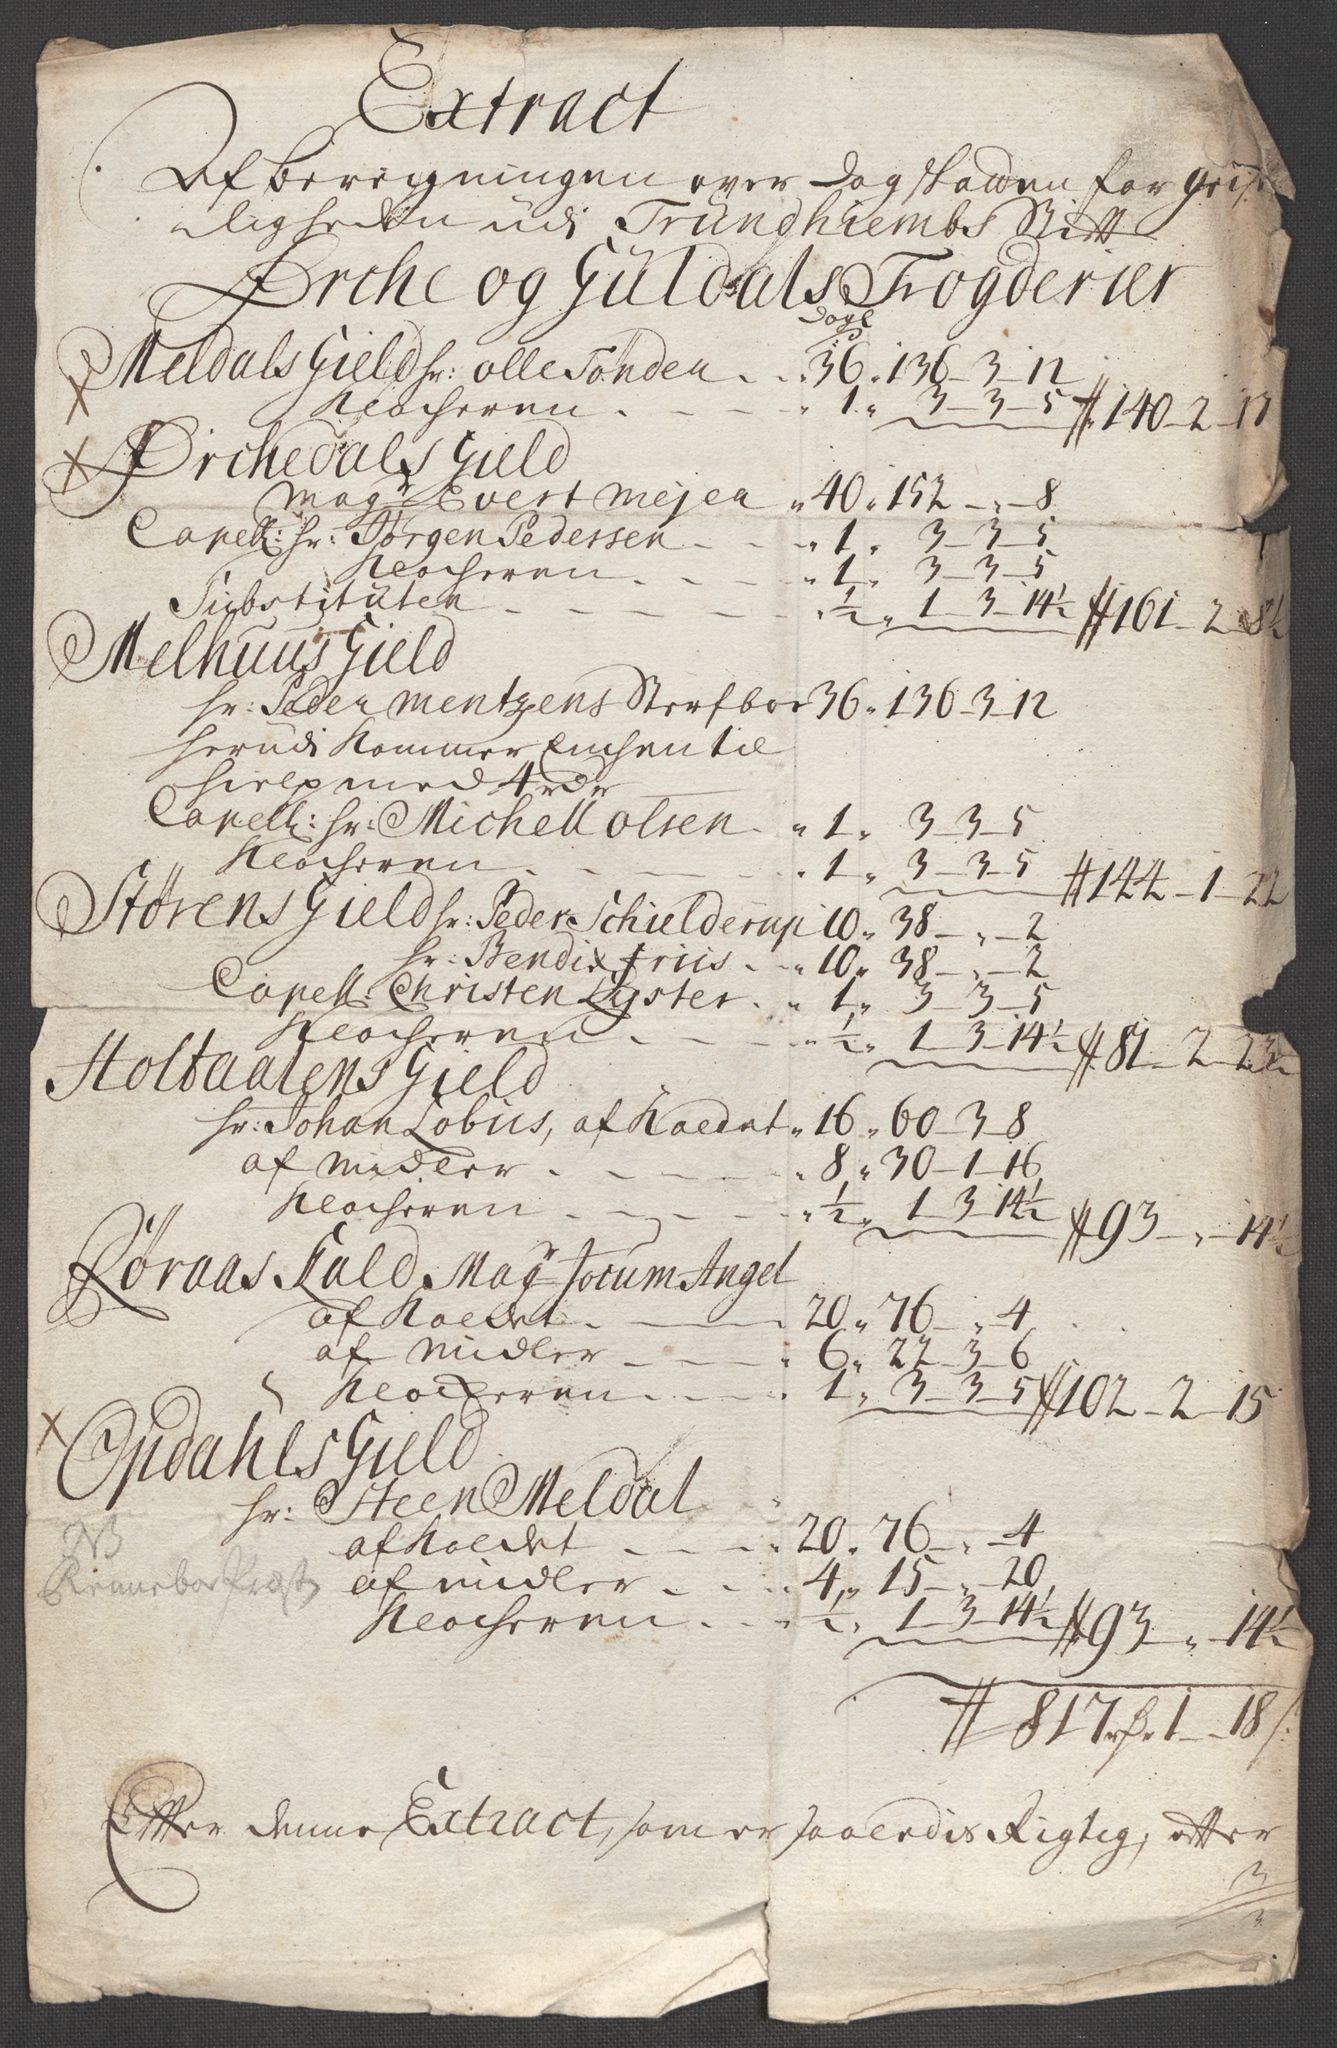 Extract
Af beregningen over Dagskatten for Geist
ligheden udi Trundhiembs Stift
Ørche og Guldals Fogderier
Dagl
ß
Meldals Gield hr: Olle Tønder - - 36 „ 136 - 3 - 12
Klocheren - - - - „ 1 „ 3 - 3 - 5 # 140 - 2 - 17
Ørchedals Gield
Magr Evert Mejer „ 40 „ 152 - „ - 8
Capell: hr: Jørgen Pedersen - - - 1 „ 3 - 3 - 5
Klocheren - - - - „ 1 „ 3 - 3 - 5
Substituten - - - - - ½ „ 1 - 3 - 14½ # 161 - 2 - 8½
Melhuus Gield
hr: Peder Mentzens Sterfboe 36 „ 136 - 3 - 12
herudi kommer Enchen til
hielp med 4 rdr
Capell: hr: Michell Olsen - „ 1 „ 3 - 3 - 5
Klocheren - - - - - 1 „ 3 - 3 - 5 # 144 - 1 - 22
Størens Gield hr: Peder Schielderup 10 „ 38 - „ - 2
hr: Bendix Friis - - „ 10 „ 38 - „ - 2
Capell: Christen Lyster - „ 1 „ 3 - 3 - 5
Klocheren - - - - „ ½ „ 1 - 3 - 14½ # 81 - 2 - 23½
Holtaalens Gield
hr: Johan Lobius, af Kaldet „ 16 „ 60 - 3 - 8
af Midler - - - - „ 8 „ 30 - 1 - 16
Klocheren - - - - „ ½ „ 1 - 3 - 14½ # 93 - „ - 14½
Røraas Kald Magr Jocum Angel
af Kaldet - - - 20 „ 76 - „ - 4
af Midler - - - - „ 6 „ 22 - 3 - 6
Klocheren - - - - 1 „ 3 - 3 - 5 # 102 - 2 - 15
Opdahls Gield
hr: Steen Meldal
af Kaldet - - - - 20 „ 76 - „ - 4
NB
Renneboe Præst
af Midler - - - 4 „ 15 - „ - 20
Klocheren - - - ½ „ 1 - 3 - 14½ # 93 - „ - 14½
# 817 rdr 1 - 18 ß:
Efter denne Extract, som er saaledis Rigtig, efter
3
3